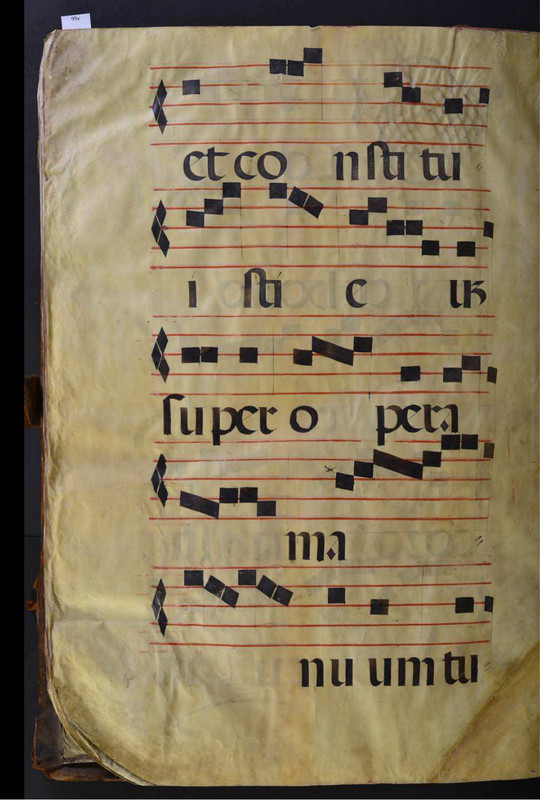 et co nsti tu
i sti e uꝫ
su per o pera
ma
nu um tu